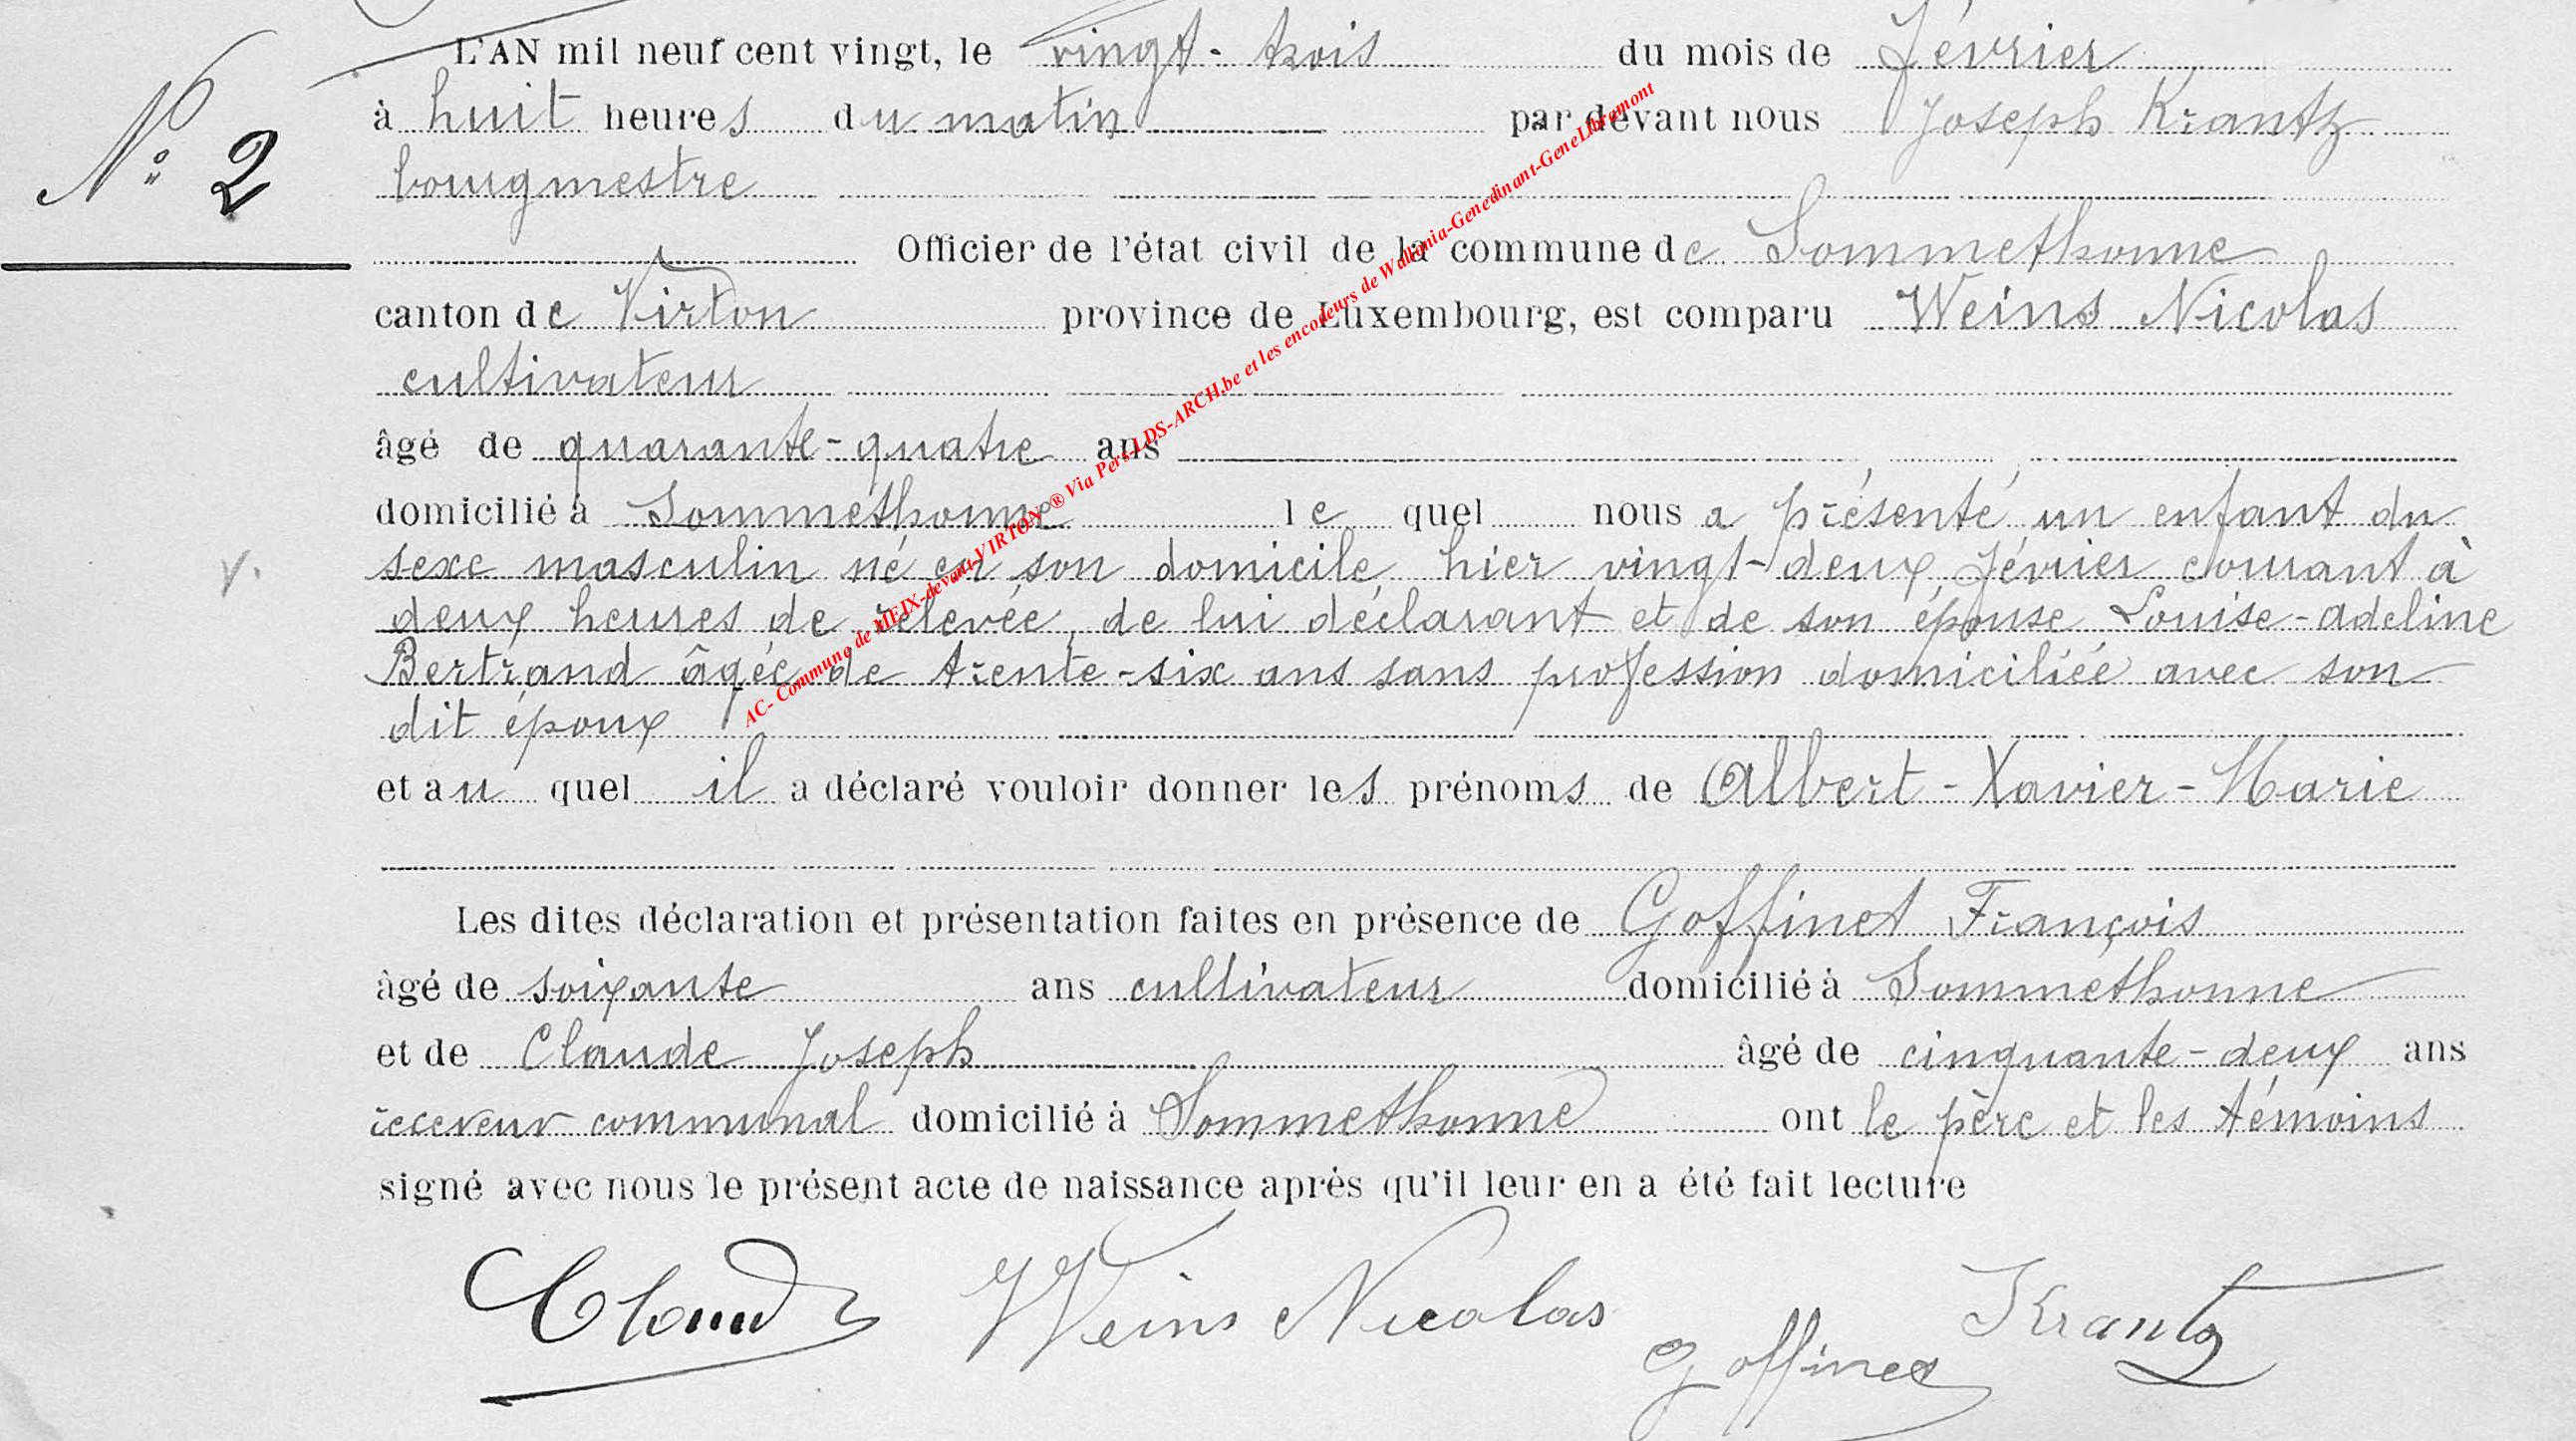 L'AN mil neuf cent vingt, le vingt-trois du mois de février
à huit heures du matin par devant nous Joseph Krantz
N° 2
bourgmestre
Officier de l'état civil de la commune de Sommethonne
canton de Virton province de Luxembourg, est comparu Weins Nicolas
cultivateur
âgé de quarante-quatre ans
domicilié à Sommethonne le quel nous a présenté un enfant du
sexe masculin né en son domicile hier vingt-deux février courant à
deux heures de relevée, de lui déclarant et de son épouse Louise-Adeline
Bertrand âgée de trente-six ans sans profession domiciliée avec son
dit époux
et au quel il a déclaré vouloir donner les prénoms de Albert-Xavier-Marie
Les dites déclaration et présentation faites en présence de Goffinet François
âgé de soixante ans cultivateur domicilié à Sommethonne
et de Claude Joseph âgé de cinquante-deux ans
receveur communal domicilié à Sommethonne ont le père et les témoins
signé avec nous le présent acte de naissance après qu'il leur en a été fait lecture
Claude Weins Nicolas Goffinet JKrantz
AC- Commune de MEIX-devant-VIRTON ® Via Pers-LDS-ARCH.be et les encodeurs de Wallonia-Genedinant-GeneLibramont